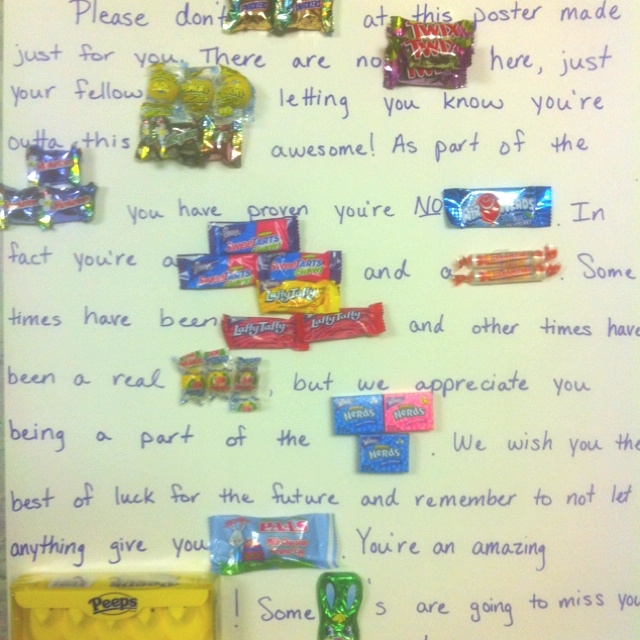 Please don't at this poster made
TWIX
just for you. There are no TWIX here, just
your fellow letting you know you're
outta this awesome! As part of the
you have proven you're NO AIRHEADS. In
SweeTARTS
fact you're a SweeTARTS SweeTARTS and a. Some
Laffy Taffy
times have been Laffy Taffy Laffy Taffy and other times have
been a real, but we appreciate you
NERDS NERDS
being a part of the NERDS. We wish you the
best of luck for the future and remember to not let
anything give you PAAS. You're an amazing
Peeps ! Some 's are going to miss you